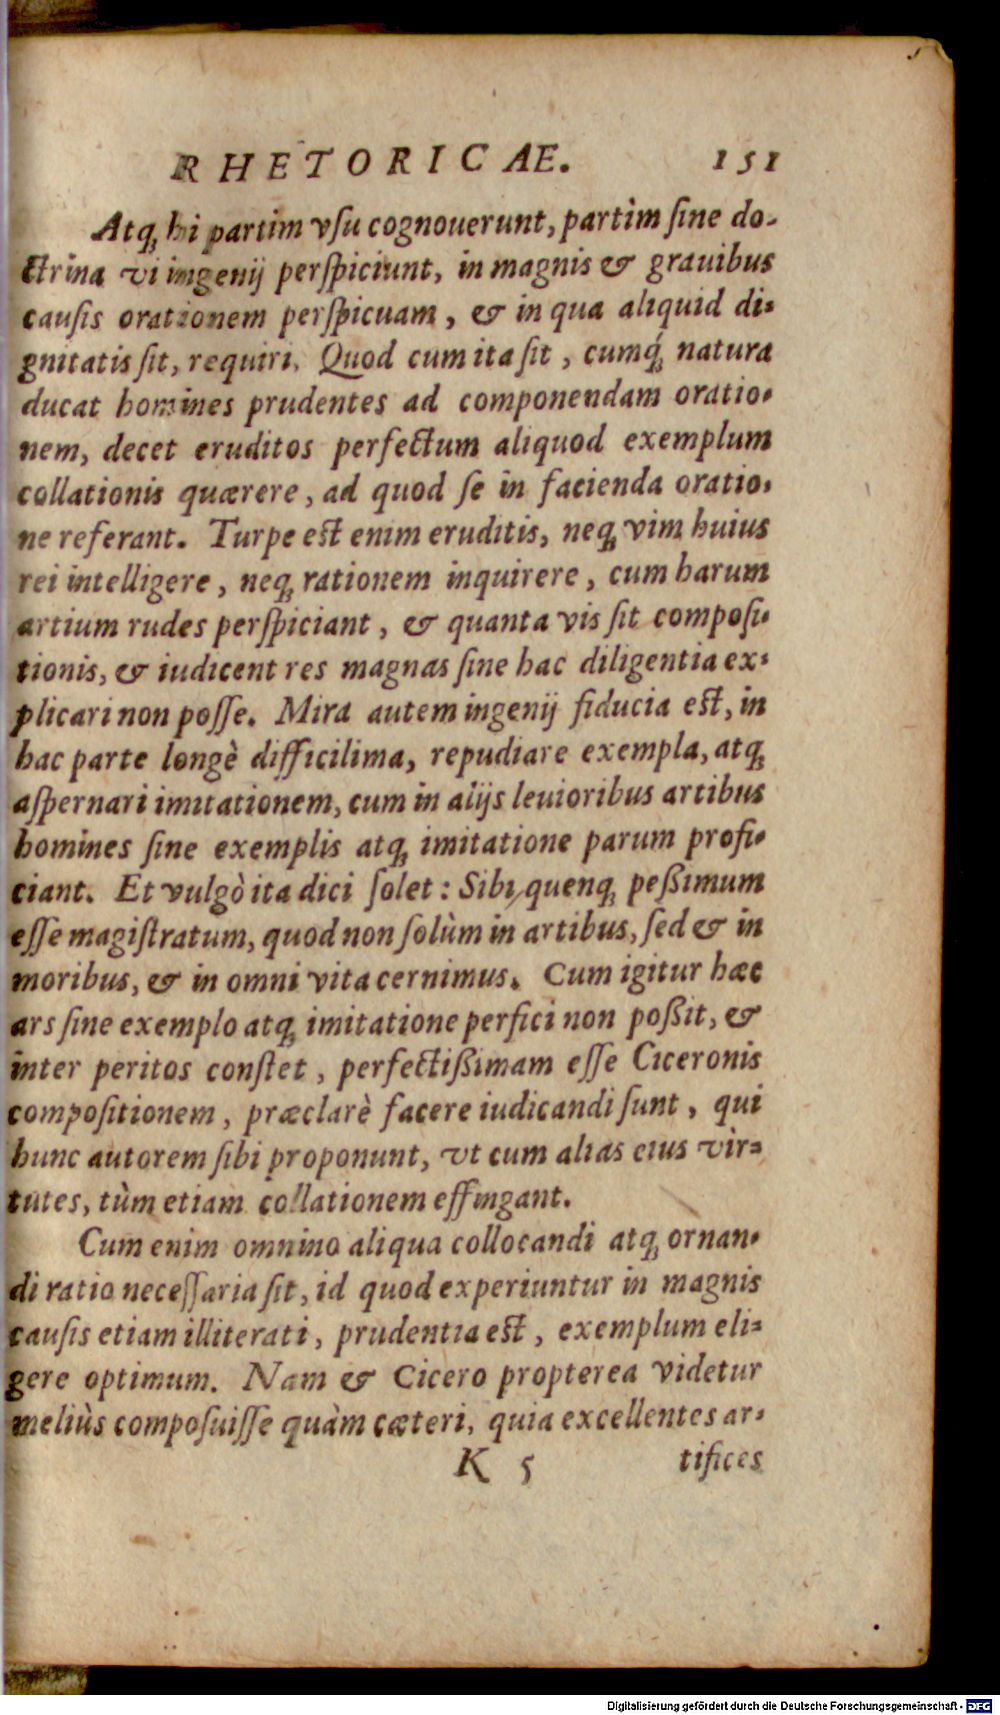 RHETORICAE. 151
Atq́; hi partim vsu cognouerunt, partim sine do-
ctrina vi ingenij perspiciunt, in magnis & grauibus
causis orationem perspicuam, & in qua aliquid di-
gnitatis sit, requiri. Quod cum ita sit, cumq́; natura
ducat homines prudentes ad componendam oratio-
nem, decet eruditos perfectum aliquod exemplum
collationis quærere, ad quod se in facienda oratio-
ne referant. Turpe est enim eruditis, neq; vim huius
rei intelligere, neq; rationem inquirere, cum harum
artium rudes perspiciant, & quanta vis sit composi-
tionis, & iudicent res magnas sine hac diligentia ex-
plicari non posse. Mira autem ingenij fiducia est, in
hac parte longè difficilima, repudiare exempla, atq;
aspernari imitationem, cum in alijs leuioribus artibus
homines sine exemplis atq; imitatione parum profi-
ciant. Et vulgò ita dici solet: Sibi quenq; peßimum
esse magistratum, quod non solùm in artibus, sed & in
moribus, & in omni vita cernimus. Cum igitur hæc
ars sine exemplo atq; imitatione perfici non poßit, &
inter peritos constet, perfectißimam esse Ciceronis
compositionem, præclarè facere iudicandi sunt, qui
hunc autorem sibi proponunt, vt cum alias eius vir-
tutes, tùm etiam collationem effingant.
Cum enim omnino aliqua collocandi atq; ornan-
di ratio necessaria sit, id quod experiuntur in magnis
causis etiam illiterati, prudentia est, exemplum eli-
gere optimum. Nam & Cicero propterea videtur
meliùs composuisse quàm cæteri, quia excellentes ar-
K 5 tifices
Digitalisierung gefördert durch die Deutsche Forschungsgemeinschaft - DFG